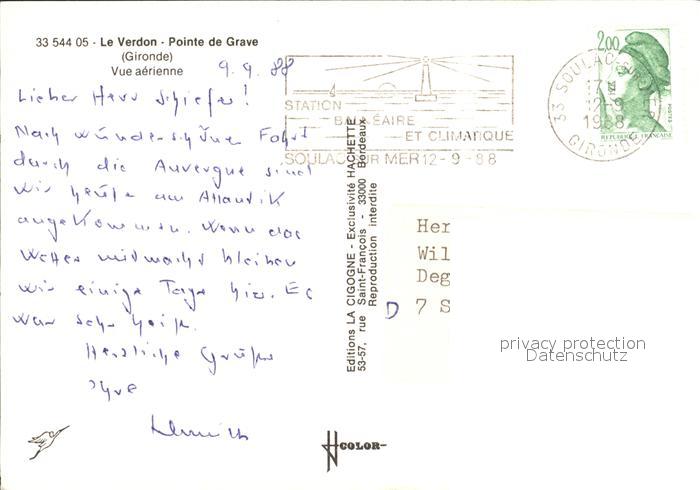 33 544 05 - Le Verdon - Pointe de Grave
(Gironde)
Vue aérienne
9. 9. 88
Lieber Herr Schiefer!
Nach wunderschöner Fahrt
durch die Auvergne sind
wir heute am Atlantik
angekommen. Wenn das
Wetter mitmacht bleiben
wir einige Tage hier. Es
war sehr heiß.
Herzliche Grüße
Ihre
STATION
BALNÉAIRE
ET CLIMATIQUE
SOULAC SUR MER 12-9-88
33 SOULAC-SUR-MER
17 H
12-9
1988
GIRONDE
2,00
POSTES
REPUBLIQUE FRANÇAISE
Editions LA CIGOGNE - Exclusivité HACHETTE
53-57, rue Saint-François - 33000 Bordeaux
Reproduction interdite
Her
Wil
Deg
D 7 S
privacy protection
Datenschutz
COLOR